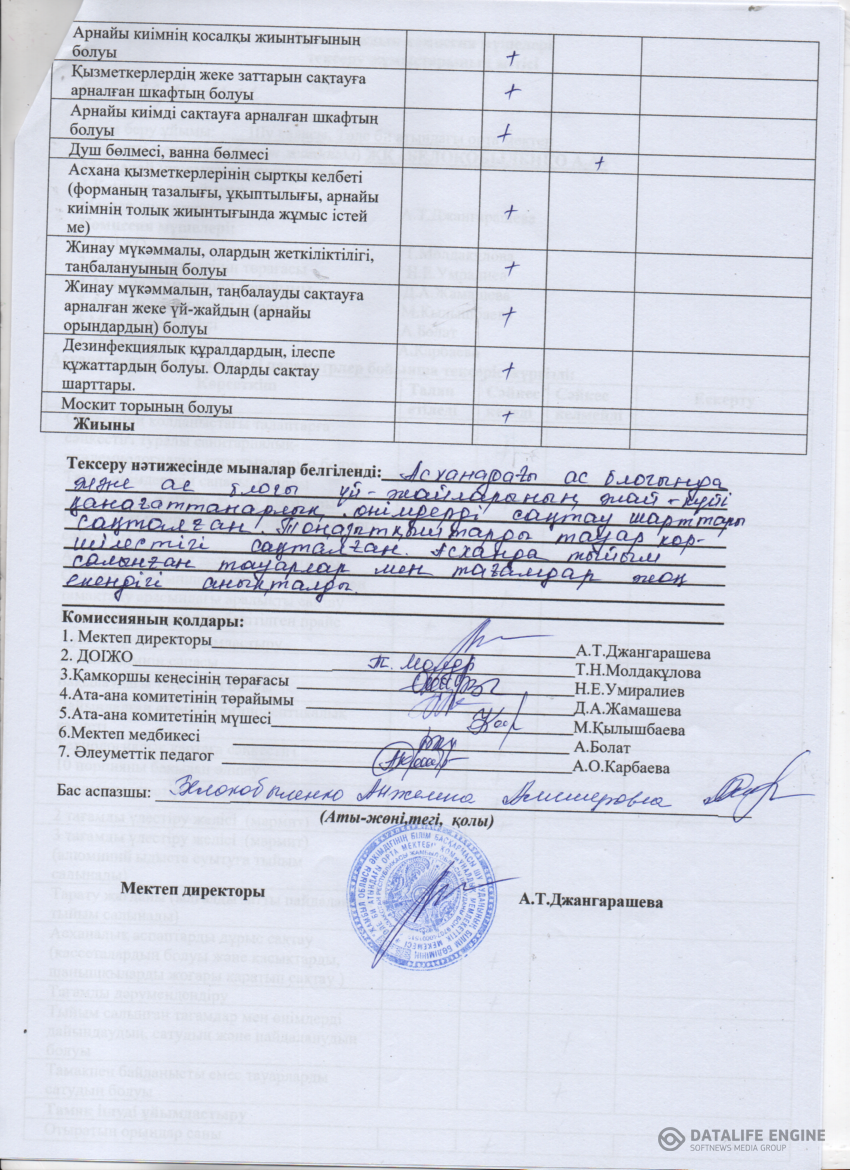 Арнайы киімнің қосалқы жиынтығының
болуы +
Қызметкерлердің жеке заттарын сақтауға
арналған шкафтың болуы +
Арнайы киімді сақтауға арналған шкафтың
болуы +
Душ бөлмесі, ванна бөлмесі +
Асхана қызметкерлерінің сыртқы келбеті
(форманың тазалығы, ұқыптылығы, арнайы
киімнің толық жиынтығында жұмыс істей +
ме)
Жинау мүкәммалы, олардың жеткіліктілігі,
таңбалануының болуы +
Жинау мүкәммалын, таңбалауды сақтауға
арналған жеке үй-жайдың (арнайы +
орындардың) болуы
Дезинфекциялық құралдардың, ілеспе
құжаттардың болуы. Оларды сақтау +
шарттары.
Москит торының болуы +
Жиыны
Тексеру нәтижесінде мыналар белгіленді: Асханадағы ас блогында
және ас блогы үй-жайларының жай-күйі
қанағаттанарлық, өнімдерді сақтау шарттары
сақталған Тоңазытқыштарды тауар көр-
шілестігі сақталған. Асханда тыйым
салынған тауарлар мен тағамдар жоқ
екендігі анықталды.
Комиссияның қолдары:
1. Мектеп директоры А.Т.Джангарашева
2. ДОІЖО Т.Н.Молдақұлова
3.Қамқоршы кеңесінің төрағасы Н.Е.Умиралиев
4.Ата-ана комитетінің төрайымы Д.А.Жамашева
5.Ата-ана комитетінің мүшесі М.Қылышбаева
6.Мектеп медбикесі А.Болат
7. Әлеуметтік педагог А.О.Карбаева
Бас аспазшы: Белокобыленко Анжелина Алишеровна
(Аты-жөні,тегі, қолы)
Мектеп директоры А.Т.Джангарашева
DATALIFE ENGINE
SOFTNEWS MEDIA GROUP